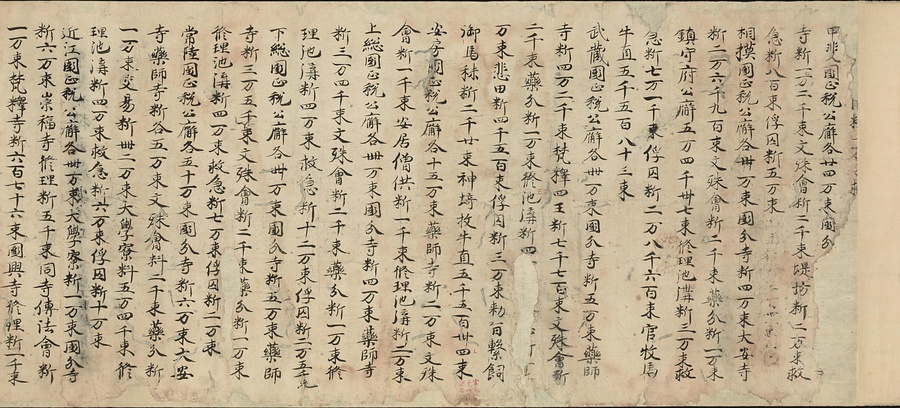 甲斐國正税公廨各廿四万束國分
寺料一万二千束文殊會料二千束堤坊料二万束救
急料八百束俘囚料五万束
相摸國正税公廨各卅万束國分寺料四万束大安寺
料二万六千九百束文殊會料二千束藥分料一万束
鎮守府公廨五万四千卅七束修理池溝料三万束救
急料七万一千束俘囚料二万八千六百束官牧馬
牛直五千五百八十三束
武蔵國正税公廨各卌万束國分寺料五万束藥師
寺料四万二千束梵釋四王料七千七百束文殊會料
二千束藥分料一万束修池溝料四
万束悲田料四千五百束俘囚料三万束勅旨繫飼
御馬秣料二千廿束神埼牧牛直五千五百卅四束
安房國正税公廨各十五万束藥師寺料二万束文殊
會料一千束安居僧供料一千束修理池溝料二万束
上総國正税公廨各卌万束國分寺料四万束藥師寺
料三万四千束文殊會料二千束藥分料一万束修
理池溝料四万束救急料十二万束俘囚料二万五千束
下総國正税公廨各卌万束國分寺料五万束藥師
寺料三万五千束文殊會料二千束藥分料一万束
修理池溝料四万束救急料七万束俘囚料二万束
常陸國正税公廨各五十万束國分寺料六万束大安
寺藥師寺料各五万束文殊會料二千束藥分料
一万束交易料卅二万束大學寮料五万四千束修
理池溝料四万束救急料六万束俘囚料十万束
近江國正税公廨各卌万束大學寮料一万束國分寺
料六万束崇福寺修理料五千束同寺傳法會料
一万束梵釋寺料六百七十六束國興寺修理料一千束